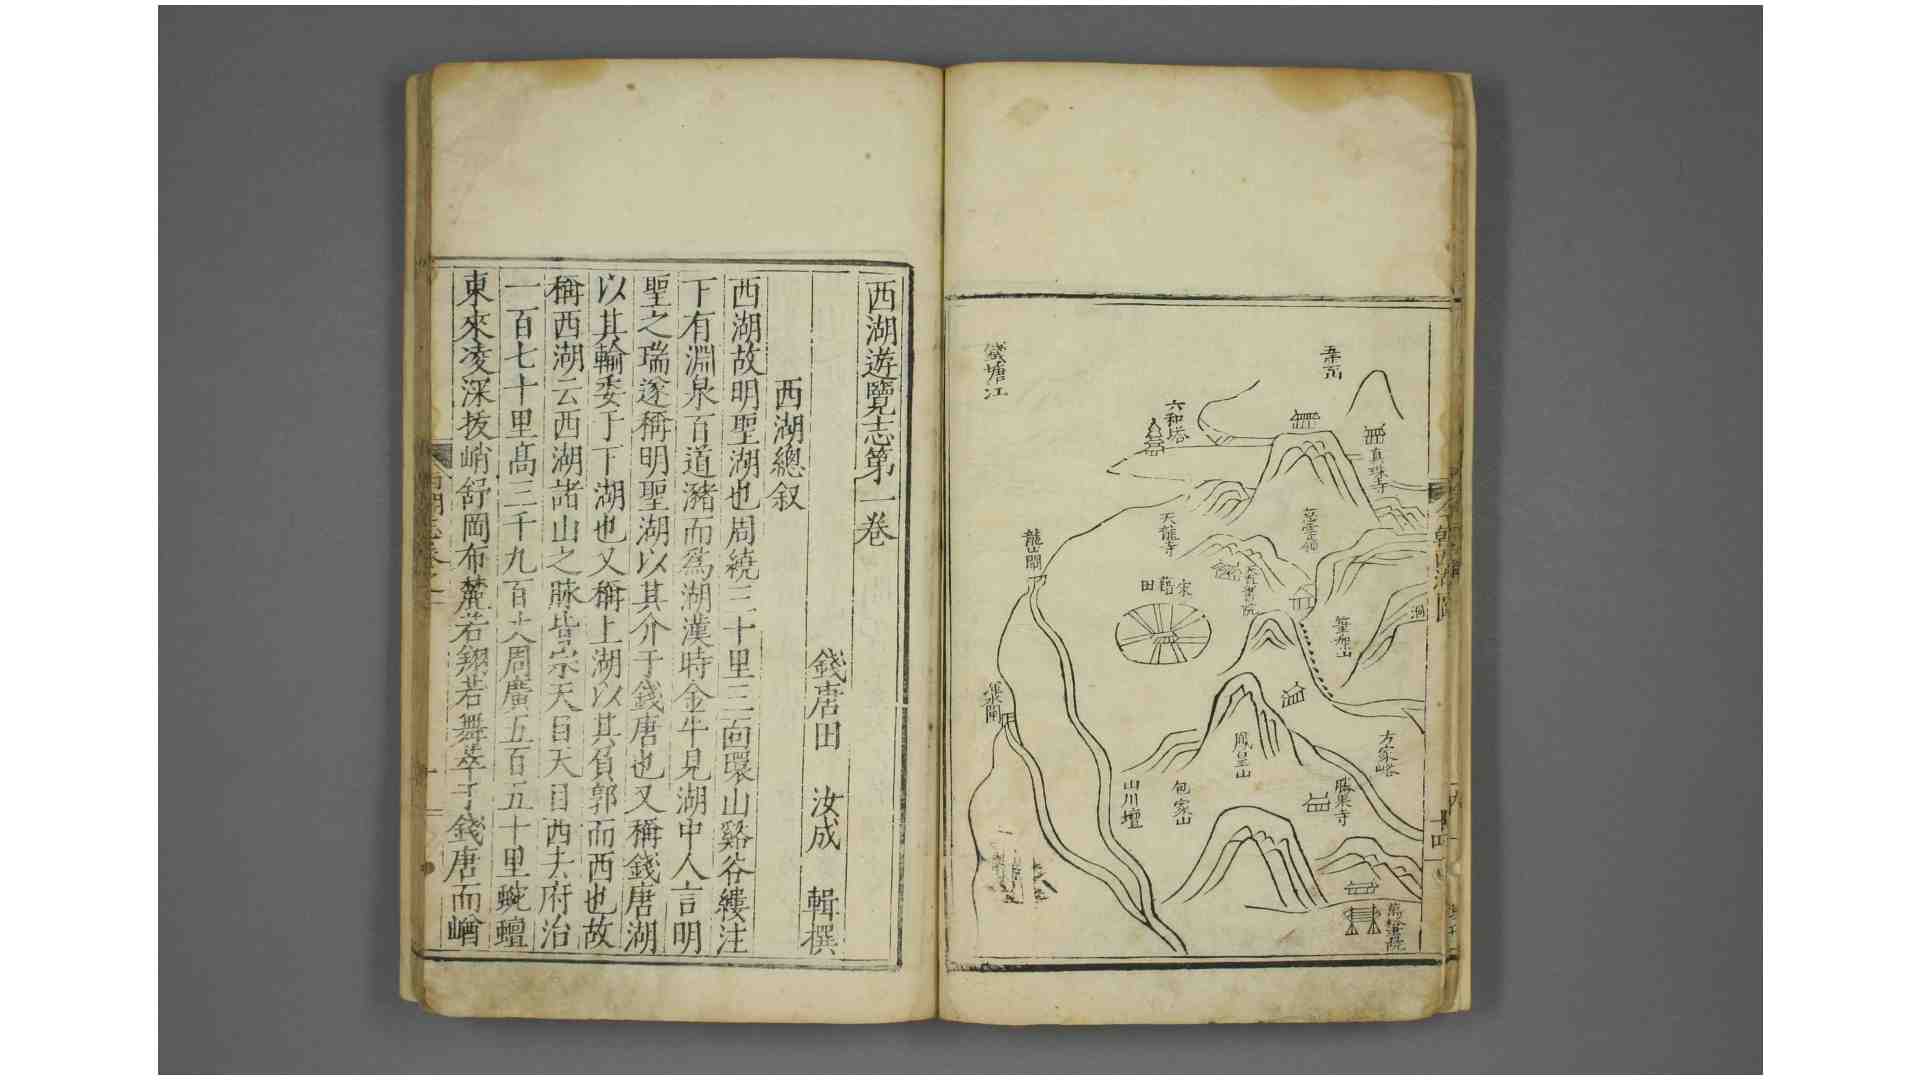 錢塘江
六和塔
真珠寺
天龍寺
龍山閘
宋藉田
天眞書院
慈雲嶺
筆架山
鳳皇山
方家峪
勝果寺
包家山
山川壇
萬松書院
今朝西湖圖
西湖遊覽志第一卷
錢唐田 汝成 輯撰
西湖總叙
西湖故明聖湖也周繞三十里三面環山谿谷縷注
下有淵泉百道瀦而爲湖漢時金牛見湖中人言明
聖之瑞遂稱明聖湖以其介于錢唐也又稱錢唐湖
以其輸委于下湖也又稱上湖以其負郭而西也故
稱西湖云西湖諸山之脉皆宗天目天目西去府治
一百七十里高三千九百丈周廣五百五十里蜿蟺
東來凌深拔峭舒岡布麓若翔若舞萃于錢唐而嶒